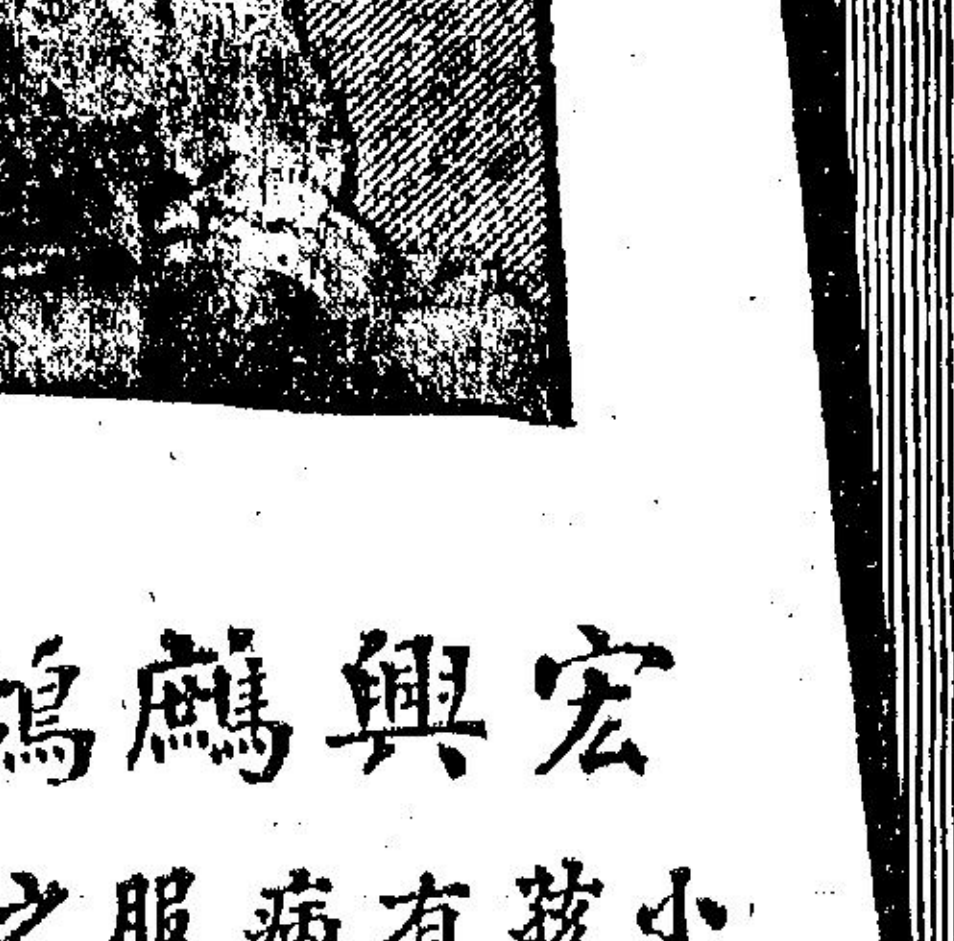 宏興鷓
小孩有病服之